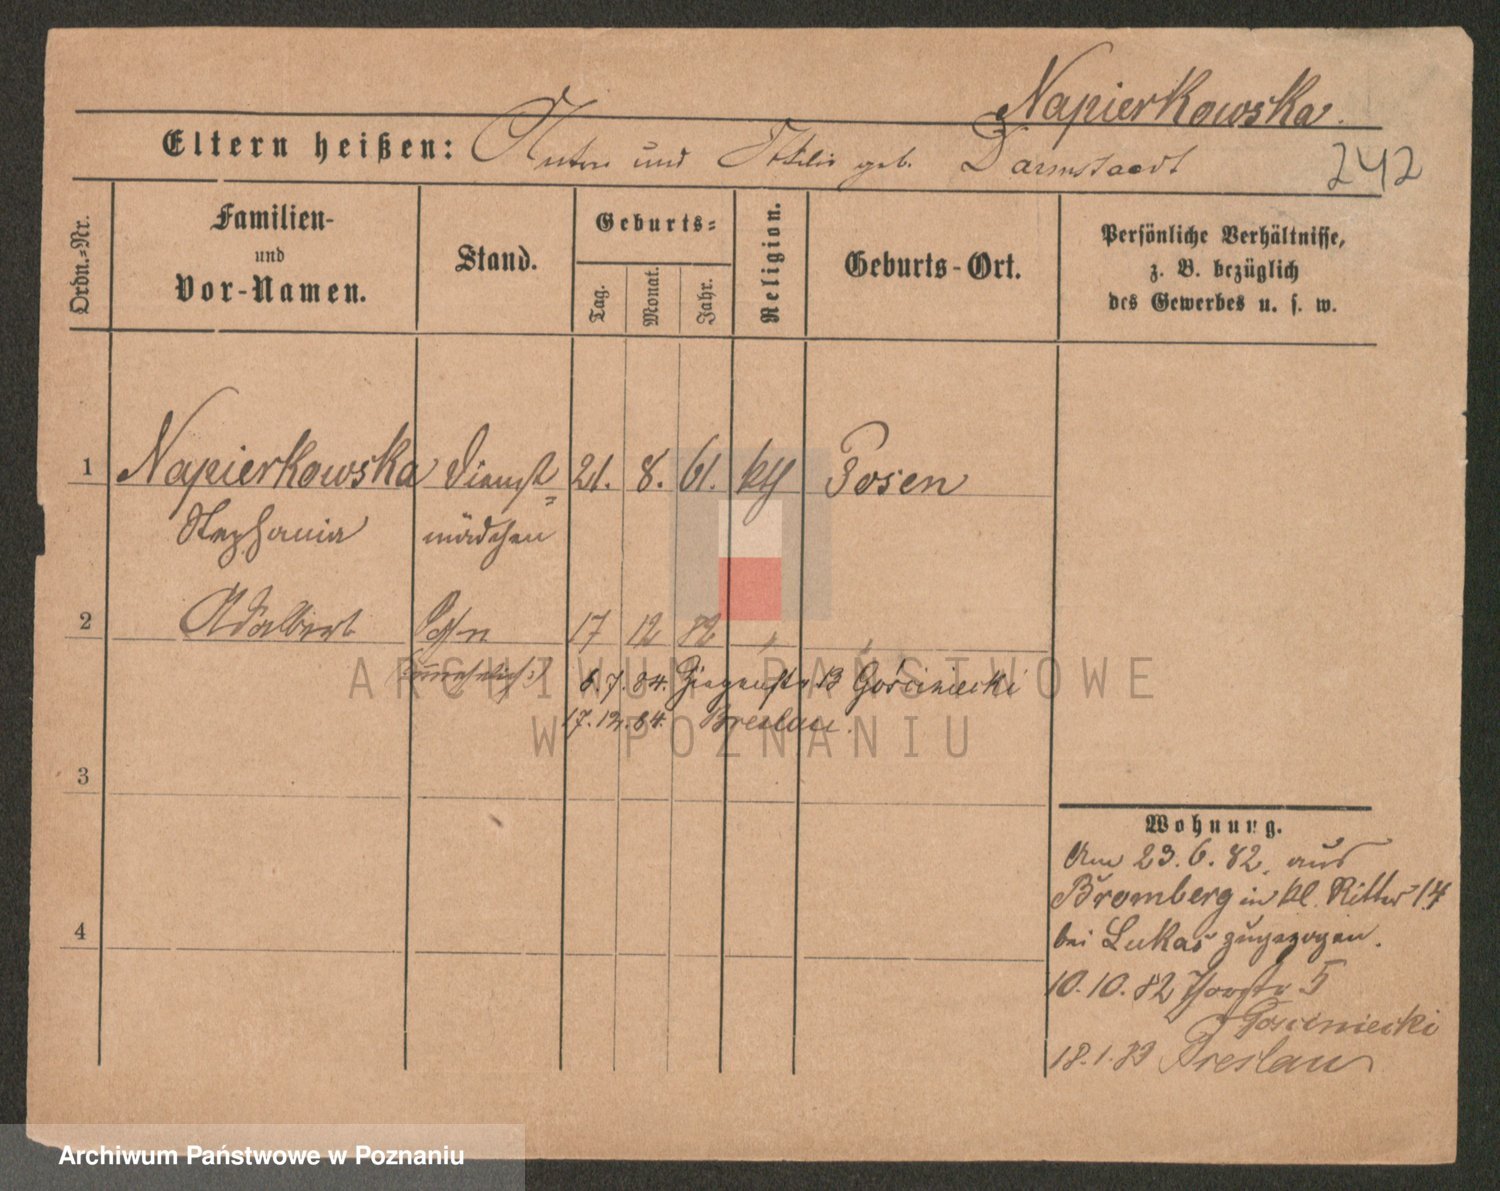 Napierkowska.
Eltern heißen: Anton und Ottilie geb. Darmstaedt
242
Ordn.-Nr.
Familien-
und
Vor-Namen.
Stand.
Geburts-
Tag.
Monat.
Jahr.
Religion.
Geburts-Ort.
Persönliche Verhältnisse,
z. B. bezüglich
des Gewerbes u. s. w.
1 Napierkowska Dienst= 21. 8. 61. kth Posen
Stephania mädchen
2 Adalbert Sohn 17 12 82 " "
6.7.84. 13 Gościniecki
17.12.84. Breslau.
3
4
Wohnung.
Am 23.6.82. aus
Bromberg in kl. Ritter 14
bei Lukas zugezogen.
10.10.82 5
Gosciniecki
18.1.83 Breslau
ARCHIWUM PAŃSTWOWE
W POZNANIU
Archiwum Państwowe w Poznaniu